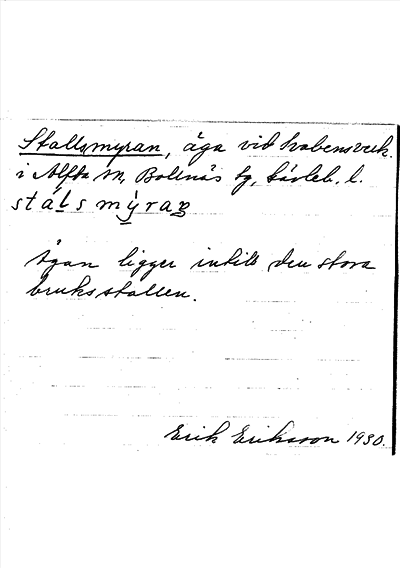 Stallsmyran, äga vid Svabensverk.
i Alfta sn, Bollnäs tg, Gävleb. l.
stálsmỳraṉ
Ägan ligger intill den stora
bruksstallen.
Erik Eriksson 1930.